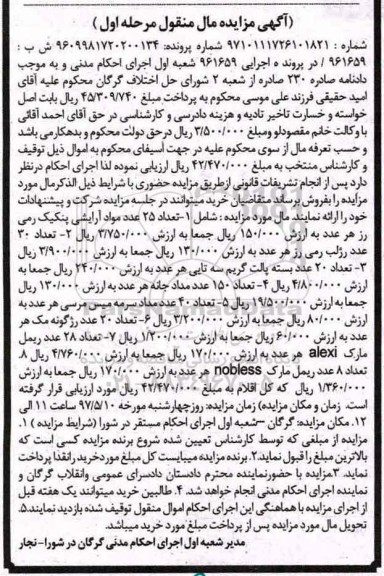 (آگهی مزایده مال منقول مرحله اول )
شماره : ۹۷۱۰۱۱۱۷۲۶۱۰۱۸۲۱ شماره پرونده: ۹۶۰۹۹۸۱۷۲۰۲۰۰۱۳۴ ش ب :
۹۶۱۶۵۹ / در پرونده ه اجرایی ۹۶۱۶۵۹ شعبه اول اجرای احکام مدنی و به موجب
دادنامه صادره ۲۳۰ صادره از شعبه ۲ شورای حل اختلاف گرگان محکوم علیه آقای
امید حقیقی فرزند علی موسی محکوم به پرداخت مبلغ ۴۵/۳۰۹/۷۴۰ ریال بابت اصل
خواسته و خسارت تاخیر تادیه و هزینه دادرسی و کارشناسی در حق آقای احمد آقائی
با وکالت خانم مقصودلو ومبلغ ۳/۵۰۰/۰۰۰ ریال درحق دولت محکوم و بدهکارمی باشد
و حسب تعرفه مال از سوی محکوم علیه در جهت استیفای محکوم به اموال ذیل توقیف
و کارشناس منتخب به مبلغ ۴۲/۴۷۰/۰۰۰ ریال ارزیابی نموده لذا اجرای احکام درنظر
دارد پس از انجام تشریفات قانونی ازطریق مزایده حضوری با شرایط ذیل الذکرمال مورد
مزایده را بفروش برساند متقاضیان خرید میتوانند در جلسه مزایده شرکت و پیشنهادات
خود را ارائه نمایند. مال مورد مزایده : شامل ۱-تعداد ۲۵ عدد مواد آرایشی پنکیک رمی
رز هر عدد به ارزش ۱۵۰/۰۰۰ ریال جمعا به ارزش ۳/۷۵۰/۰۰۰ ریال ۲- تعداد ۳۰
عدد رژلب رمی رز هر عدد به ارزش ۱۳۰/۰۰۰ ریال جمعا به ارزش ۳/۹۰۰/۰۰۰ ریال
۳- تعداد ۲۰ عدد بسته پالت گریم سه تایی هر عدد به ارزش ۲۴۰/۰۰۰ ریال جمعا به
ارزش ۴/۸۰۰/۰۰۰ ریال ۴- تعداد ۱۵۰ عدد مداد جانه هر عدد به ارزش ۱۳۰/۰۰۰ ریال
جمعا به ارزش ۱۹/۵۰۰/۰۰۰ ریال ۵- تعداد ۴۰ عدد مداد سرمه میس مرسی هر عدد به
ارزش ۸۰/۰۰۰ ریال جمعا به ارزش ۳/۲۰۰/۰۰۰ ریال ۶- تعداد ۲۰ عدد رژگونه مک هر
عدد به ارزش ۶۰/۰۰۰ ریال جمعا به ارزش ۱/۲۰۰/۰۰۰ ریال ۷- تعداد ۲۸ عدد ریمل
مارک alexi هر عدد به ارزش ۱۷۰/۰۰۰ ریال جمعا به ارزش ۴/۷۶۰/۰۰۰ ریال ۸.
تعداد ۸ عدد ریمل مارک nobless هر عدد به ارزش ۱۷۰/۰۰۰ ریال جمعا به ارزش
۱/۳۶۰/۰۰۰ ریال که کل اقلام به مبلغ ۴۲/۴۷۰/۰۰۰ ریال مورد ارزیابی قرار گرفته
است. زمان و مکان مزایده) زمان مزایده: روزچهارشنبه مورخه ۹۷/۵/۱۰ ساعت ۱۱ الی
۱۲. مکان مزایده: گرگان –شعبه اول اجرای احکام مستقر در شورا (شرایط مزایده ) ۱.
مزایده از مبلغی که توسط کارشناس تعیین شده شروع برنده مزایده کسی است که
بالاترین مبلغ را قبول نماید.۲. برنده مزایده میبایست کل مبلغ موردخرید رانقدا پرداخت
نماید. ۳.مزایده با حضورنماینده محترم دادستان دادسرای عمومی وانقلاب گرگان و
نماینده اجرای احکام مدنی انجام خواهد شد. ۴. طالبین خرید میتوانند یک هفته قبل
از اجرای مزایده با هماهنگی این اجرای احکام اموال منقول توقیف شده بازدید نمایند.۵.
تحویل مال مورد مزایده پس از پرداخت مبلغ مورد خرید میباشد.
مدیر شعبه اول اجرای احکام مدنی گرگان در شورا- نجار